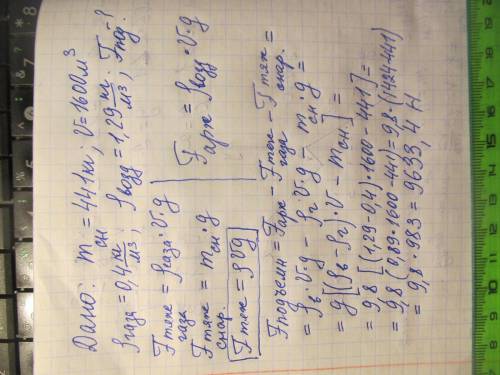 Дано: m сн = 441 кг; V = 1600 м³
ρ газа = 0,4 кг/м³; ρ возд = 1,29 кг/м³; F под - ?
F тяж газа = ρ газа · V · g
F арх = ρ возд · V · g
F тяж снар. = m сн · g
F тяж = ρVg
F подъёмн = F арх - F тяж газа - F тяж снар. =
= ρв · V · g - ρг · V · g - m сн · g =
= g [(ρв - ρг) · V - m сн] =
= 9,8 [(1,29 - 0,4) · 1600 - 441] =
= 9,8 (0,89 · 1600 - 441) = 9,8 · (1424 - 441)
= 9,8 · 983 = 9633,4 Н